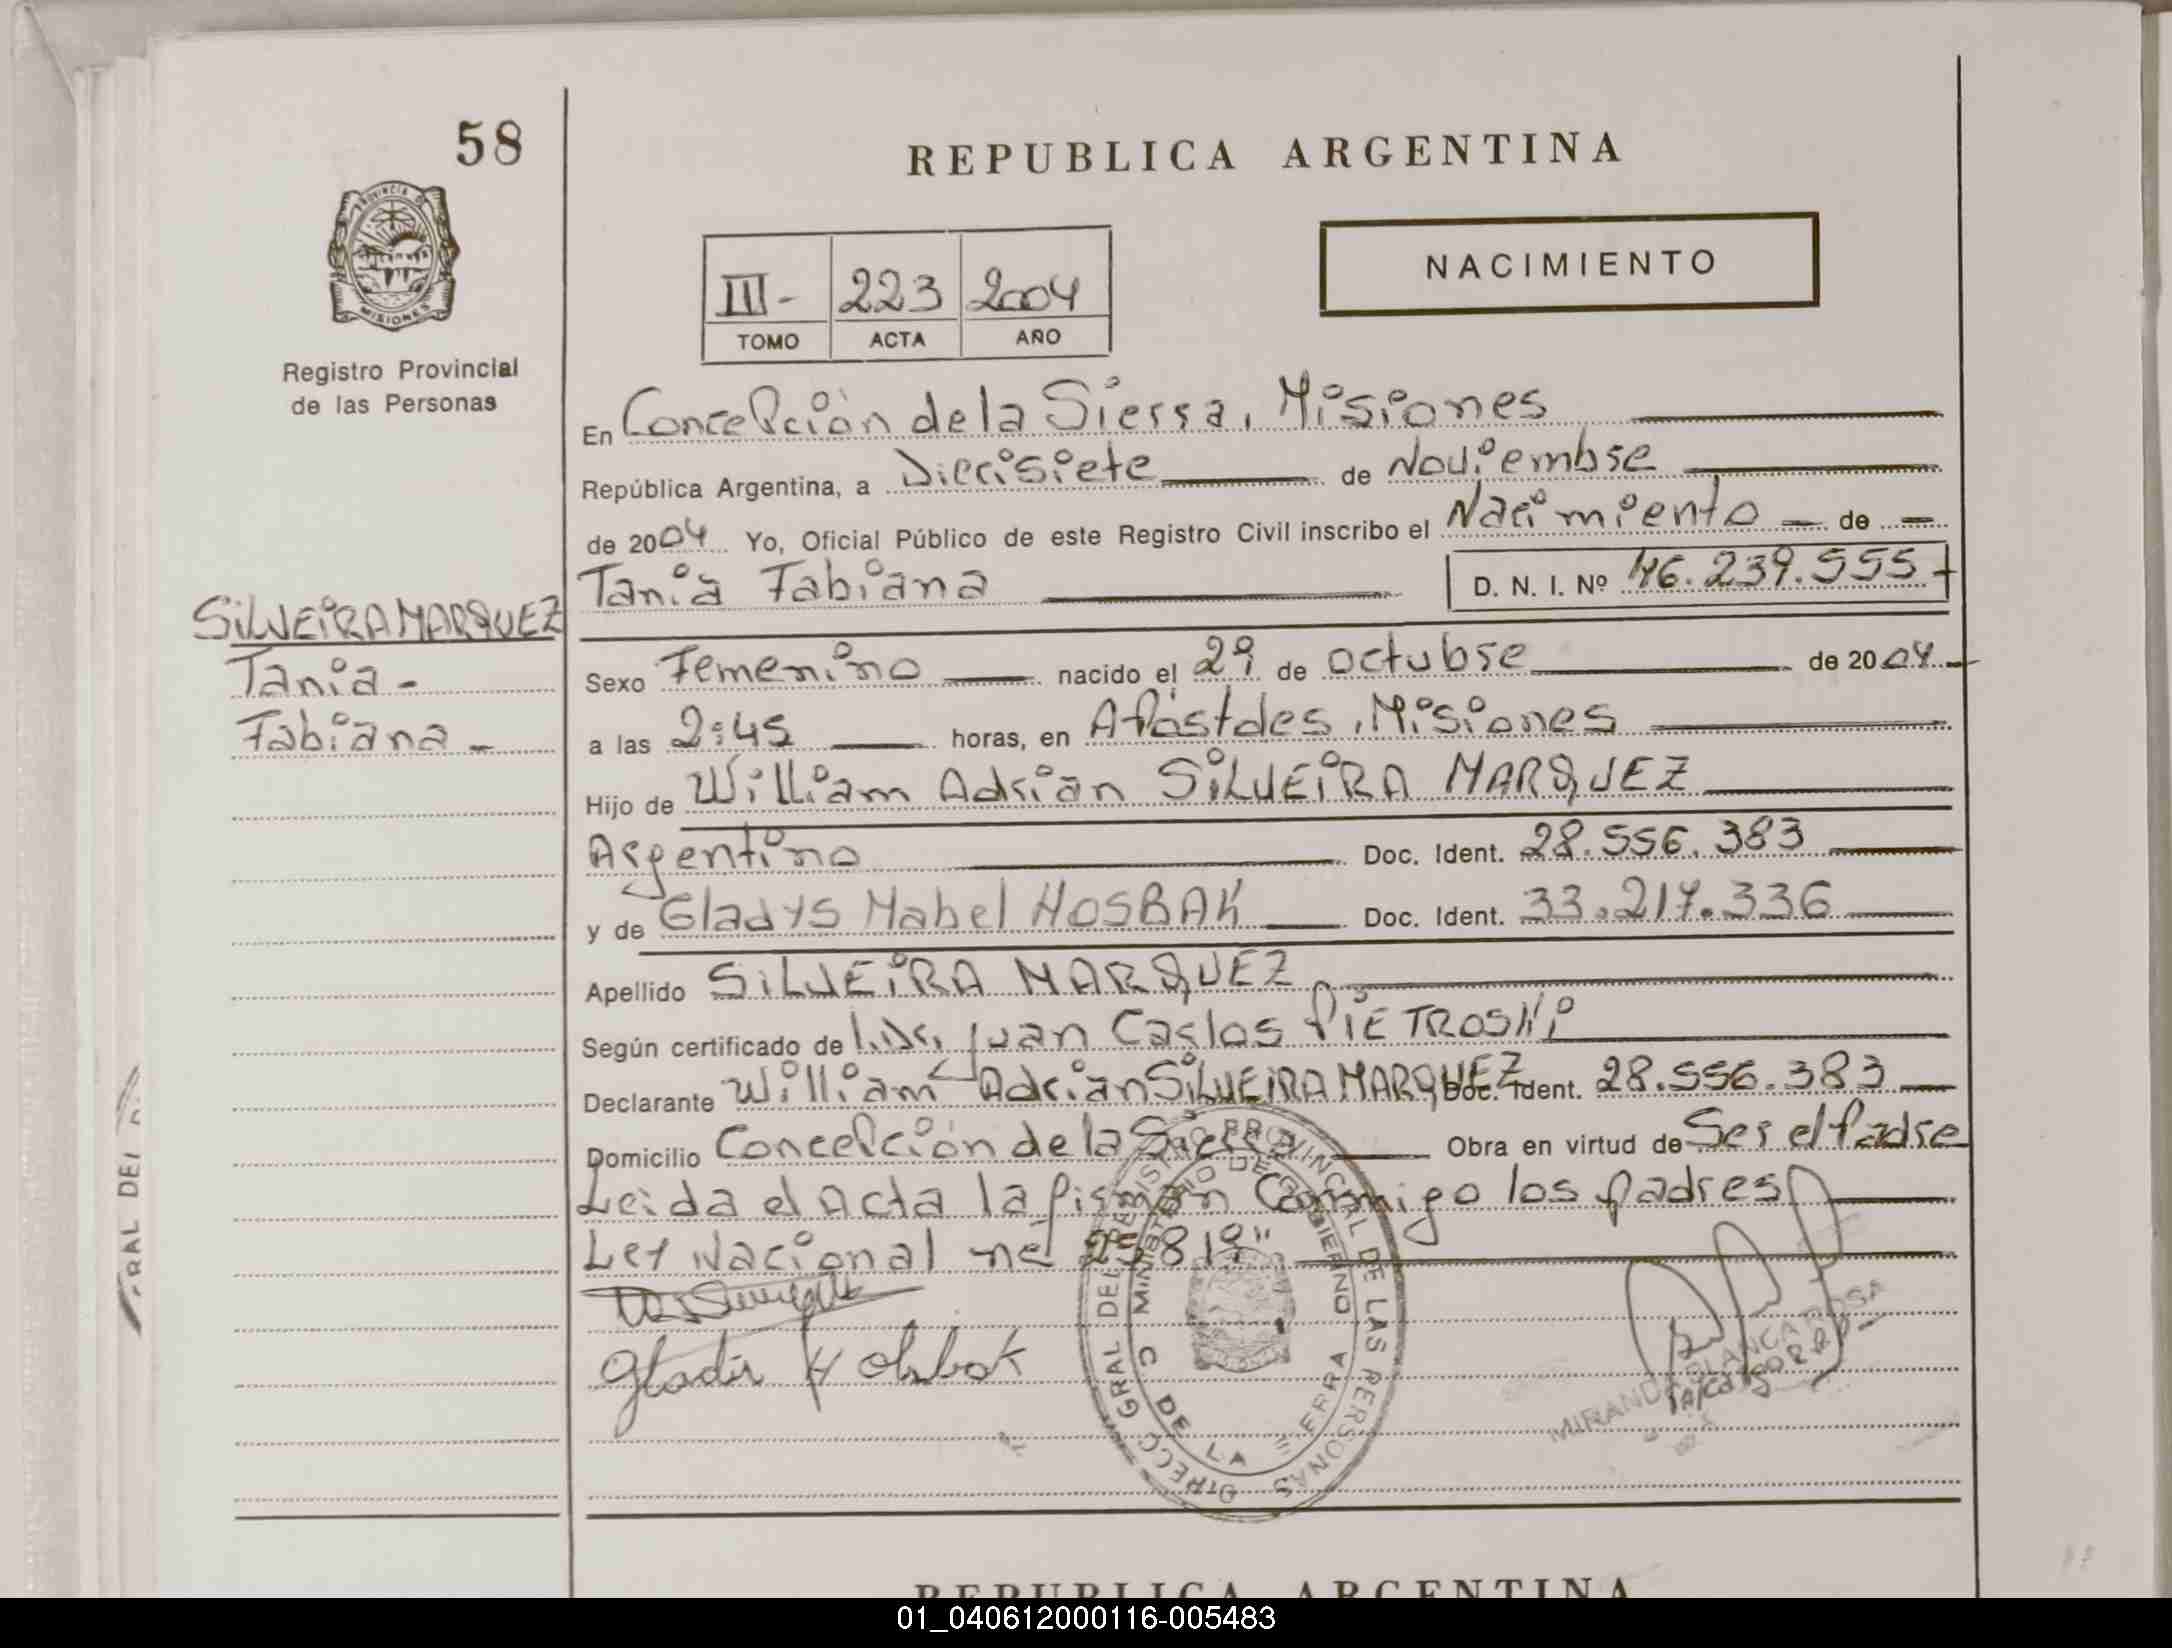 58
REPUBLICA ARGENTINA
PROVINCIA DE
MISIONES
Registro Provincial
de las Personas
III- 223 2004
TOMO ACTA AÑO
NACIMIENTO
En Concepción de la Sierra, Misiones
República Argentina, a Diecisiete de Noviembre
de 2004 Yo, Oficial Público de este Registro Civil inscribo el Nacimiento de
Tania Fabiana D. N. I. Nº 46.239.555
SILVEIRA MARQUEZ
Tania -
Fabiana -
Sexo Femenino nacido el 29 de octubre de 2004
a las 2:45 horas, en Apóstoles, Misiones
Hijo de William Adrián SILVEIRA MARQUEZ
Argentino Doc. Ident. 28.556.383
y de Gladys Mabel HOSBAK Doc. Ident. 33.217.336
Apellido SILVEIRA MARQUEZ
Según certificado de Juan Carlos PIETROSKI
Declarante William Adrián SILVEIRA MARQUEZ Doc. Ident. 28.556.383
Domicilio Concepción de la Sierra Obra en virtud de Ser el Padre
Leida el Acta la firman Conmigo los padres
Ley Nacional nº 25819"
DIRECC GRAL DEL REGISTRO PROVINCIAL DE LAS PERSONAS
MINISTERIO DE GOBIERNO
C DE LA SIERRA
MIRANDA BLANCA ROSA
RAL DEL
REPUBLICA ARGENTINA
01_040612000116-005483